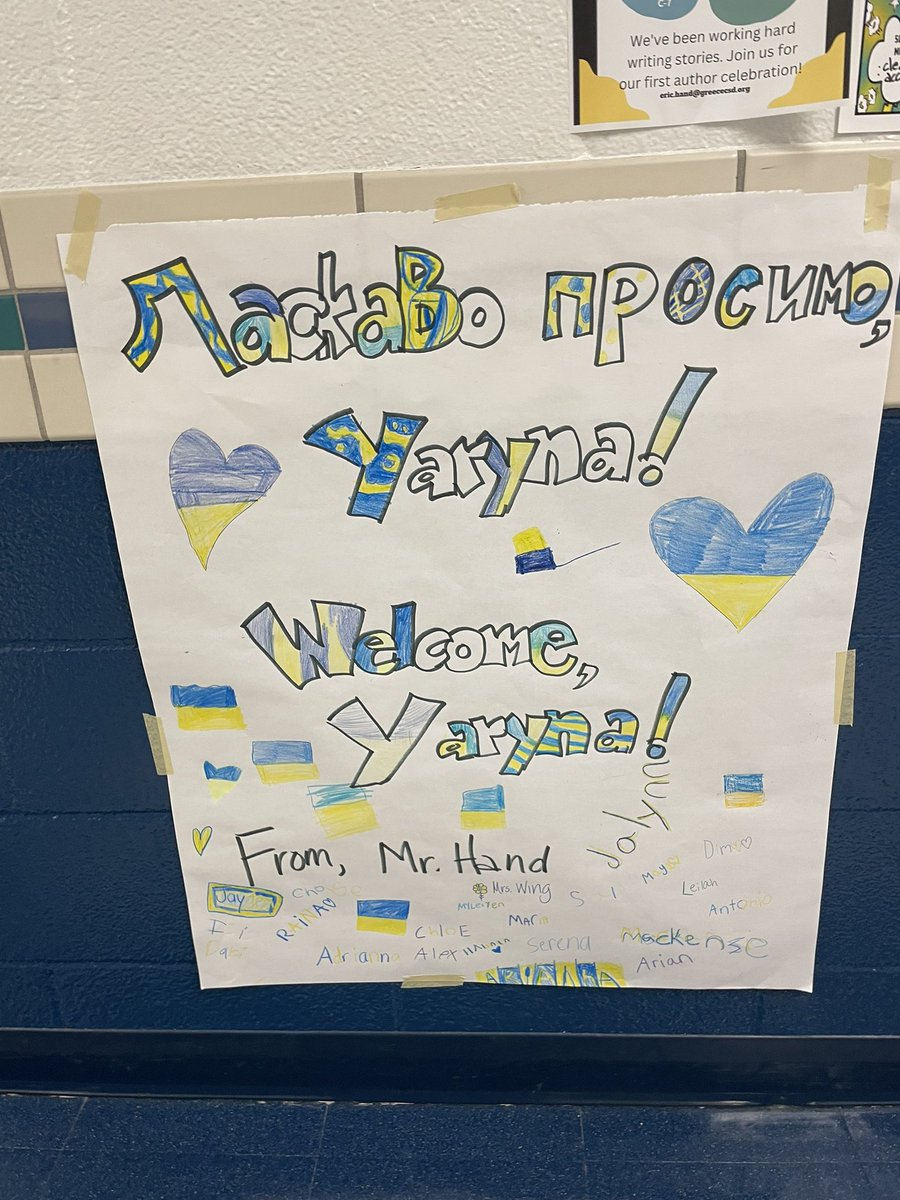 We've been working hard
writing stories. Join us for
our first author celebration!
eric.hand@greececsd.org
Ласкаво просимо,
Yaryna!
Welcome,
Yaryna!
Jolynn
From, Mr. Hand
Dimyo
Mrs. Wing
Leilah
Jayden
RAiNA
MyLeiYen
Antonio
CHLOE
Maria
Adrianna
Alex
HANNAH
Serena
Mackense
Arian
ARIANNA